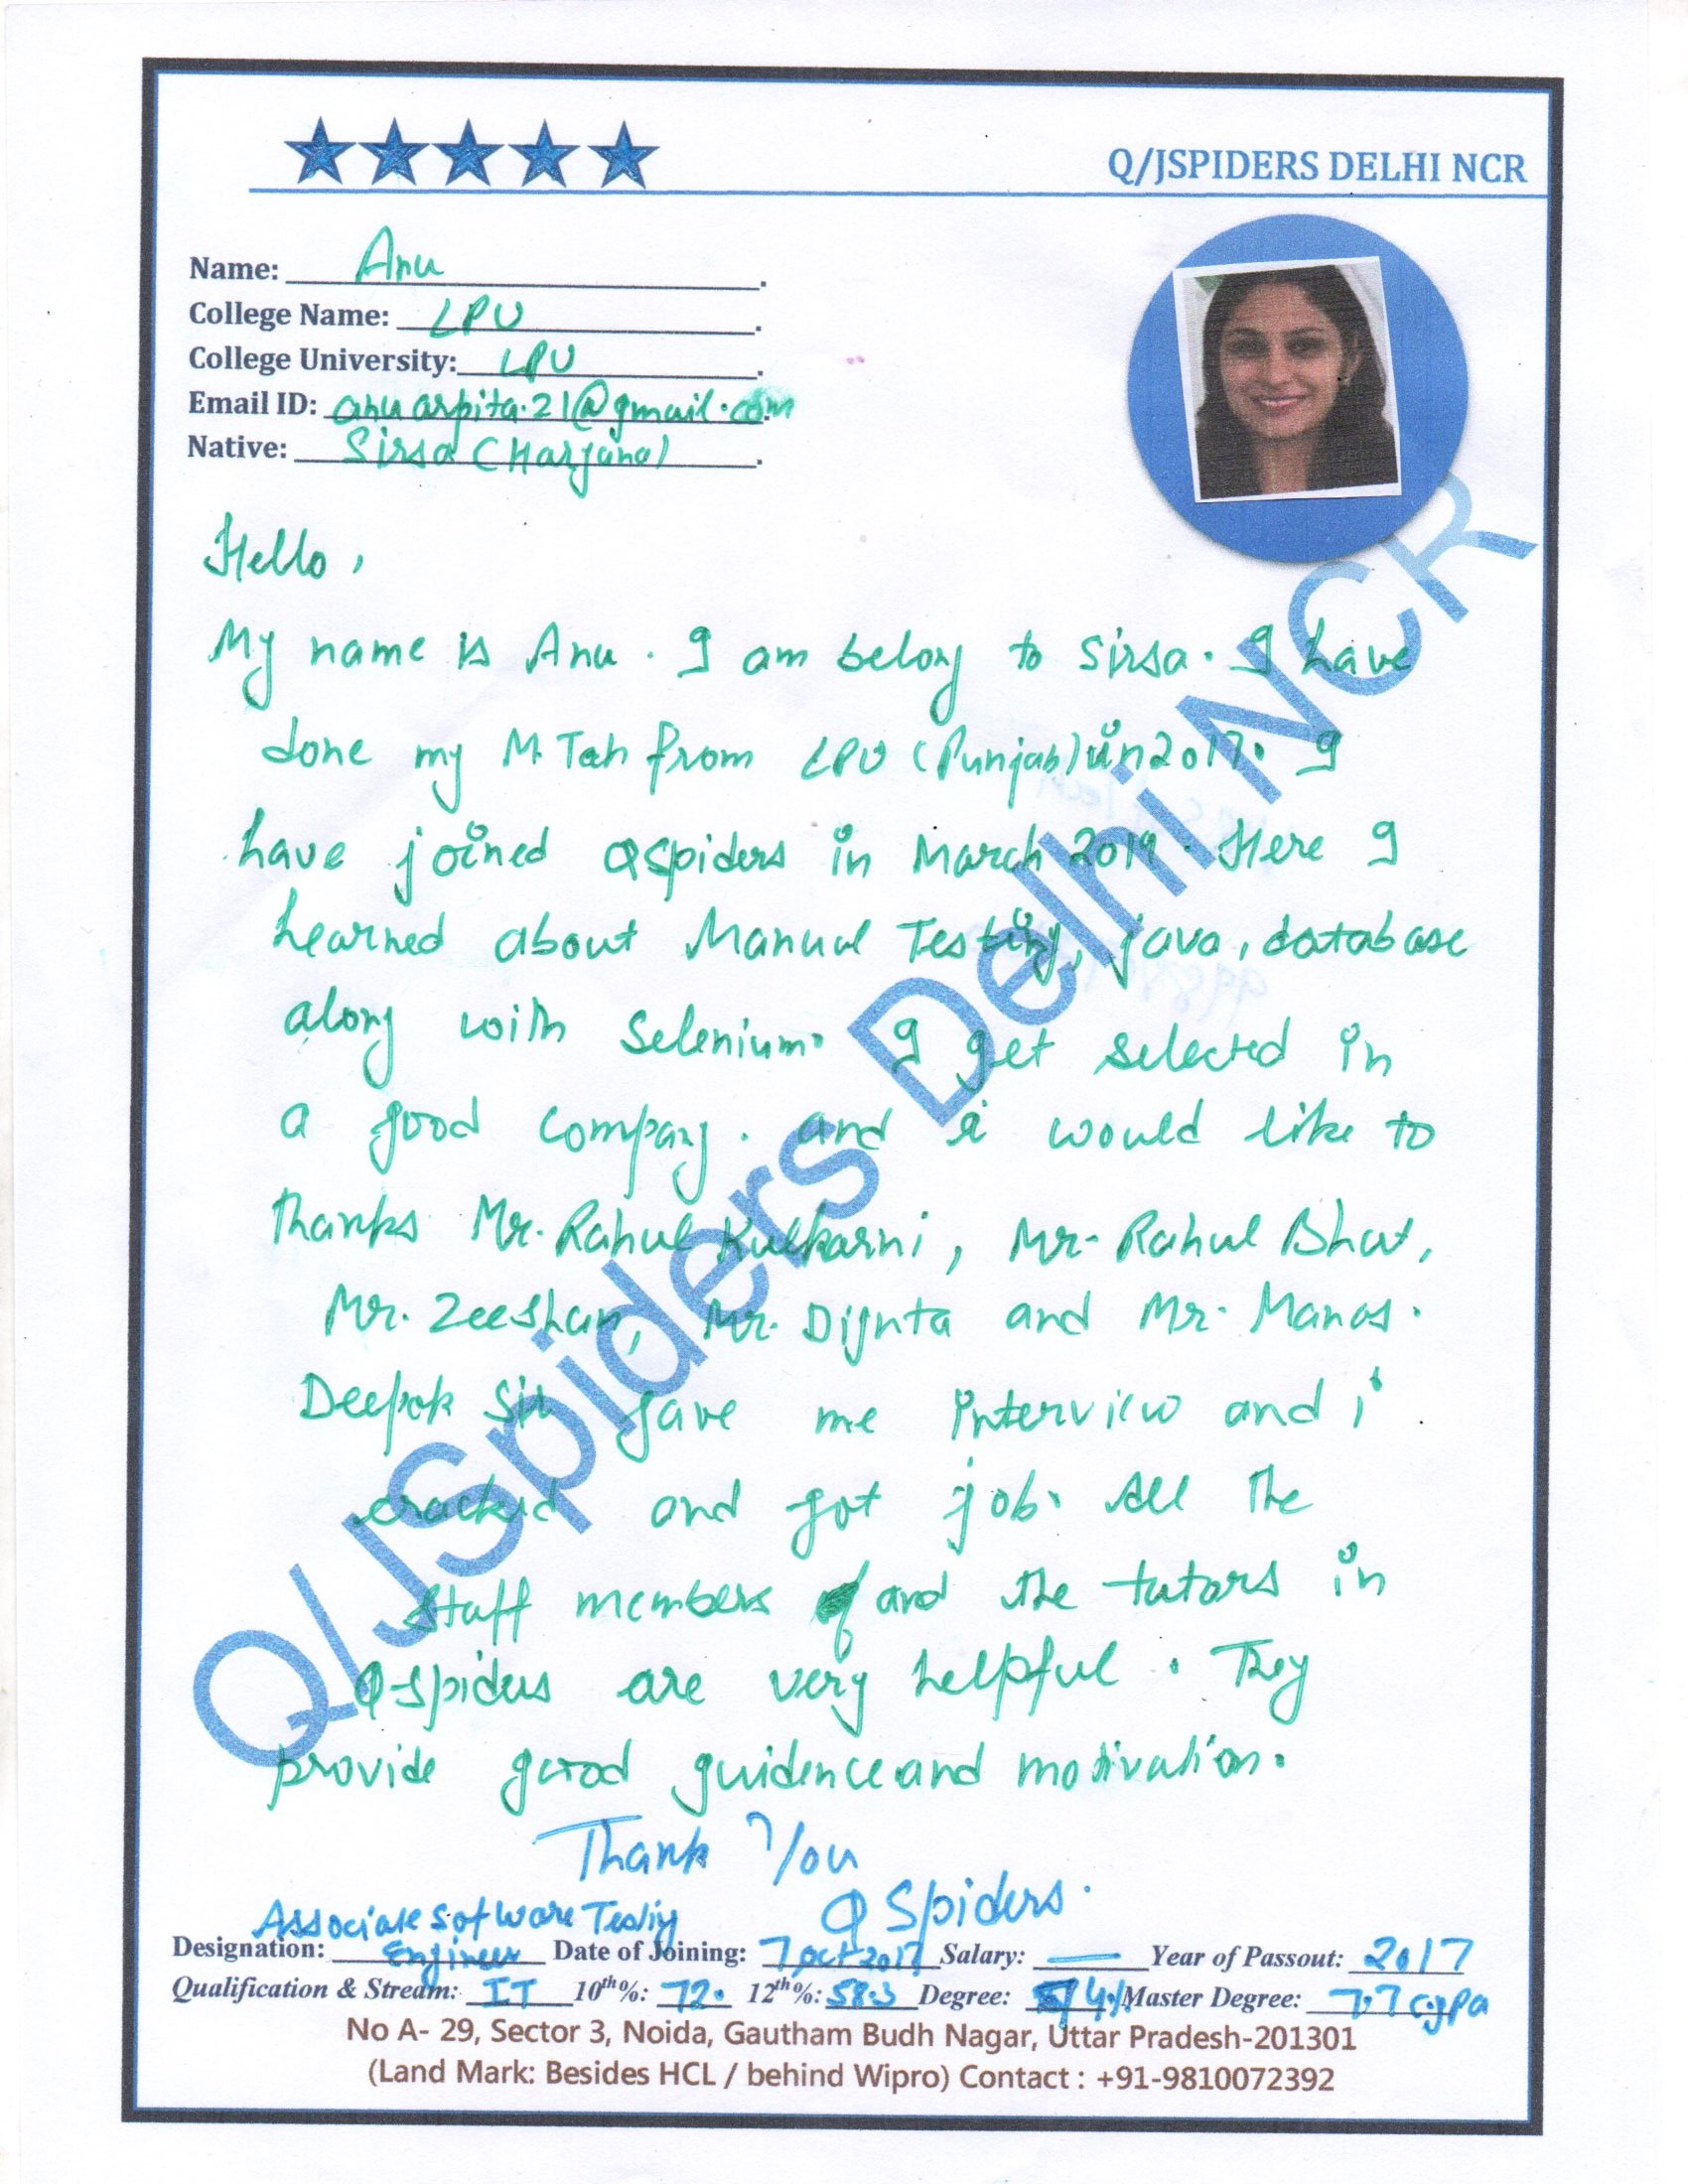 Q/JSPIDERS DELHI NCR
Name: Anu
College Name: LPU
College University: LPU
Email ID: anuarpita.21@gmail.com
Native: Sirsa (Haryana)
Hello,
My name is Anu. I am belong to Sirsa. I have
done my M.Teh from LPU (Punjab) in 2017. I
have joined QSpiders in March 2019. Here I
learned about Manual Testing, java, database
along with Selenium. I get selected in
a good company. and i would like to
thanks Mr. Rahul Kulkarni, Mr. Rahul Bhat,
Mr. Zeeshan, Mr. Dijnta and Mr. Manas.
Deepak Sir gave me interview and i
cracked and got job. All the
staff members and the tutors in
QSpiders are very helpful. They
provide good guidence and motivation.
Thank You
QSpiders.
Associate Software Testing
Designation: Engineer Date of Joining: 7 Oct 2017 Salary: — Year of Passout: 2017
Qualification & Stream: IT 10th%: 72. 12th%: 58.3 Degree: Master Degree: 7.7 cgpa
No A- 29, Sector 3, Noida, Gautham Budh Nagar, Uttar Pradesh-201301
(Land Mark: Besides HCL / behind Wipro) Contact : +91-9810072392
Q/JSpiders Delhi NCR